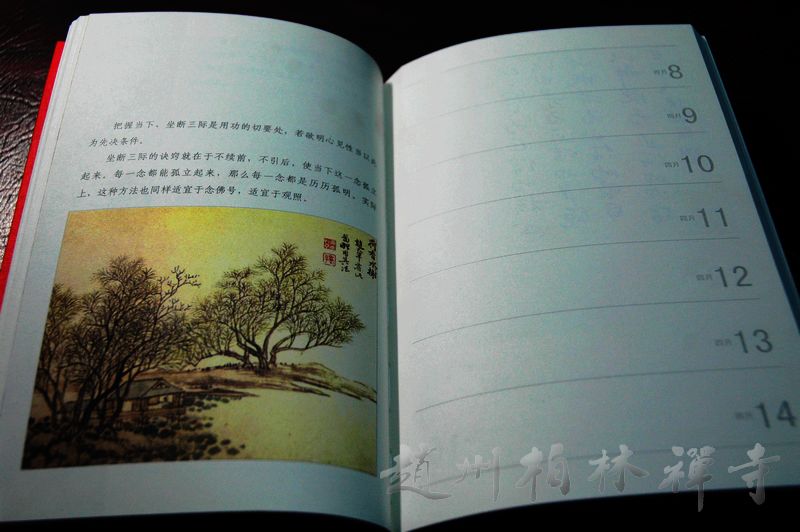 把握当下、坐断三际是用功的切要处，若欲明心见性当以此
为先决条件。
坐断三际的诀窍就在于不续前，不引后，使当下这一念孤立
起来。每一念都能孤立起来，那么每一念都是历历孤明。实际
上，这种方法也同样适宜于念佛号，适宜于观照。
四月8
四月9
四月10
四月11
四月12
四月13
四月14
趙州柏林禪寺